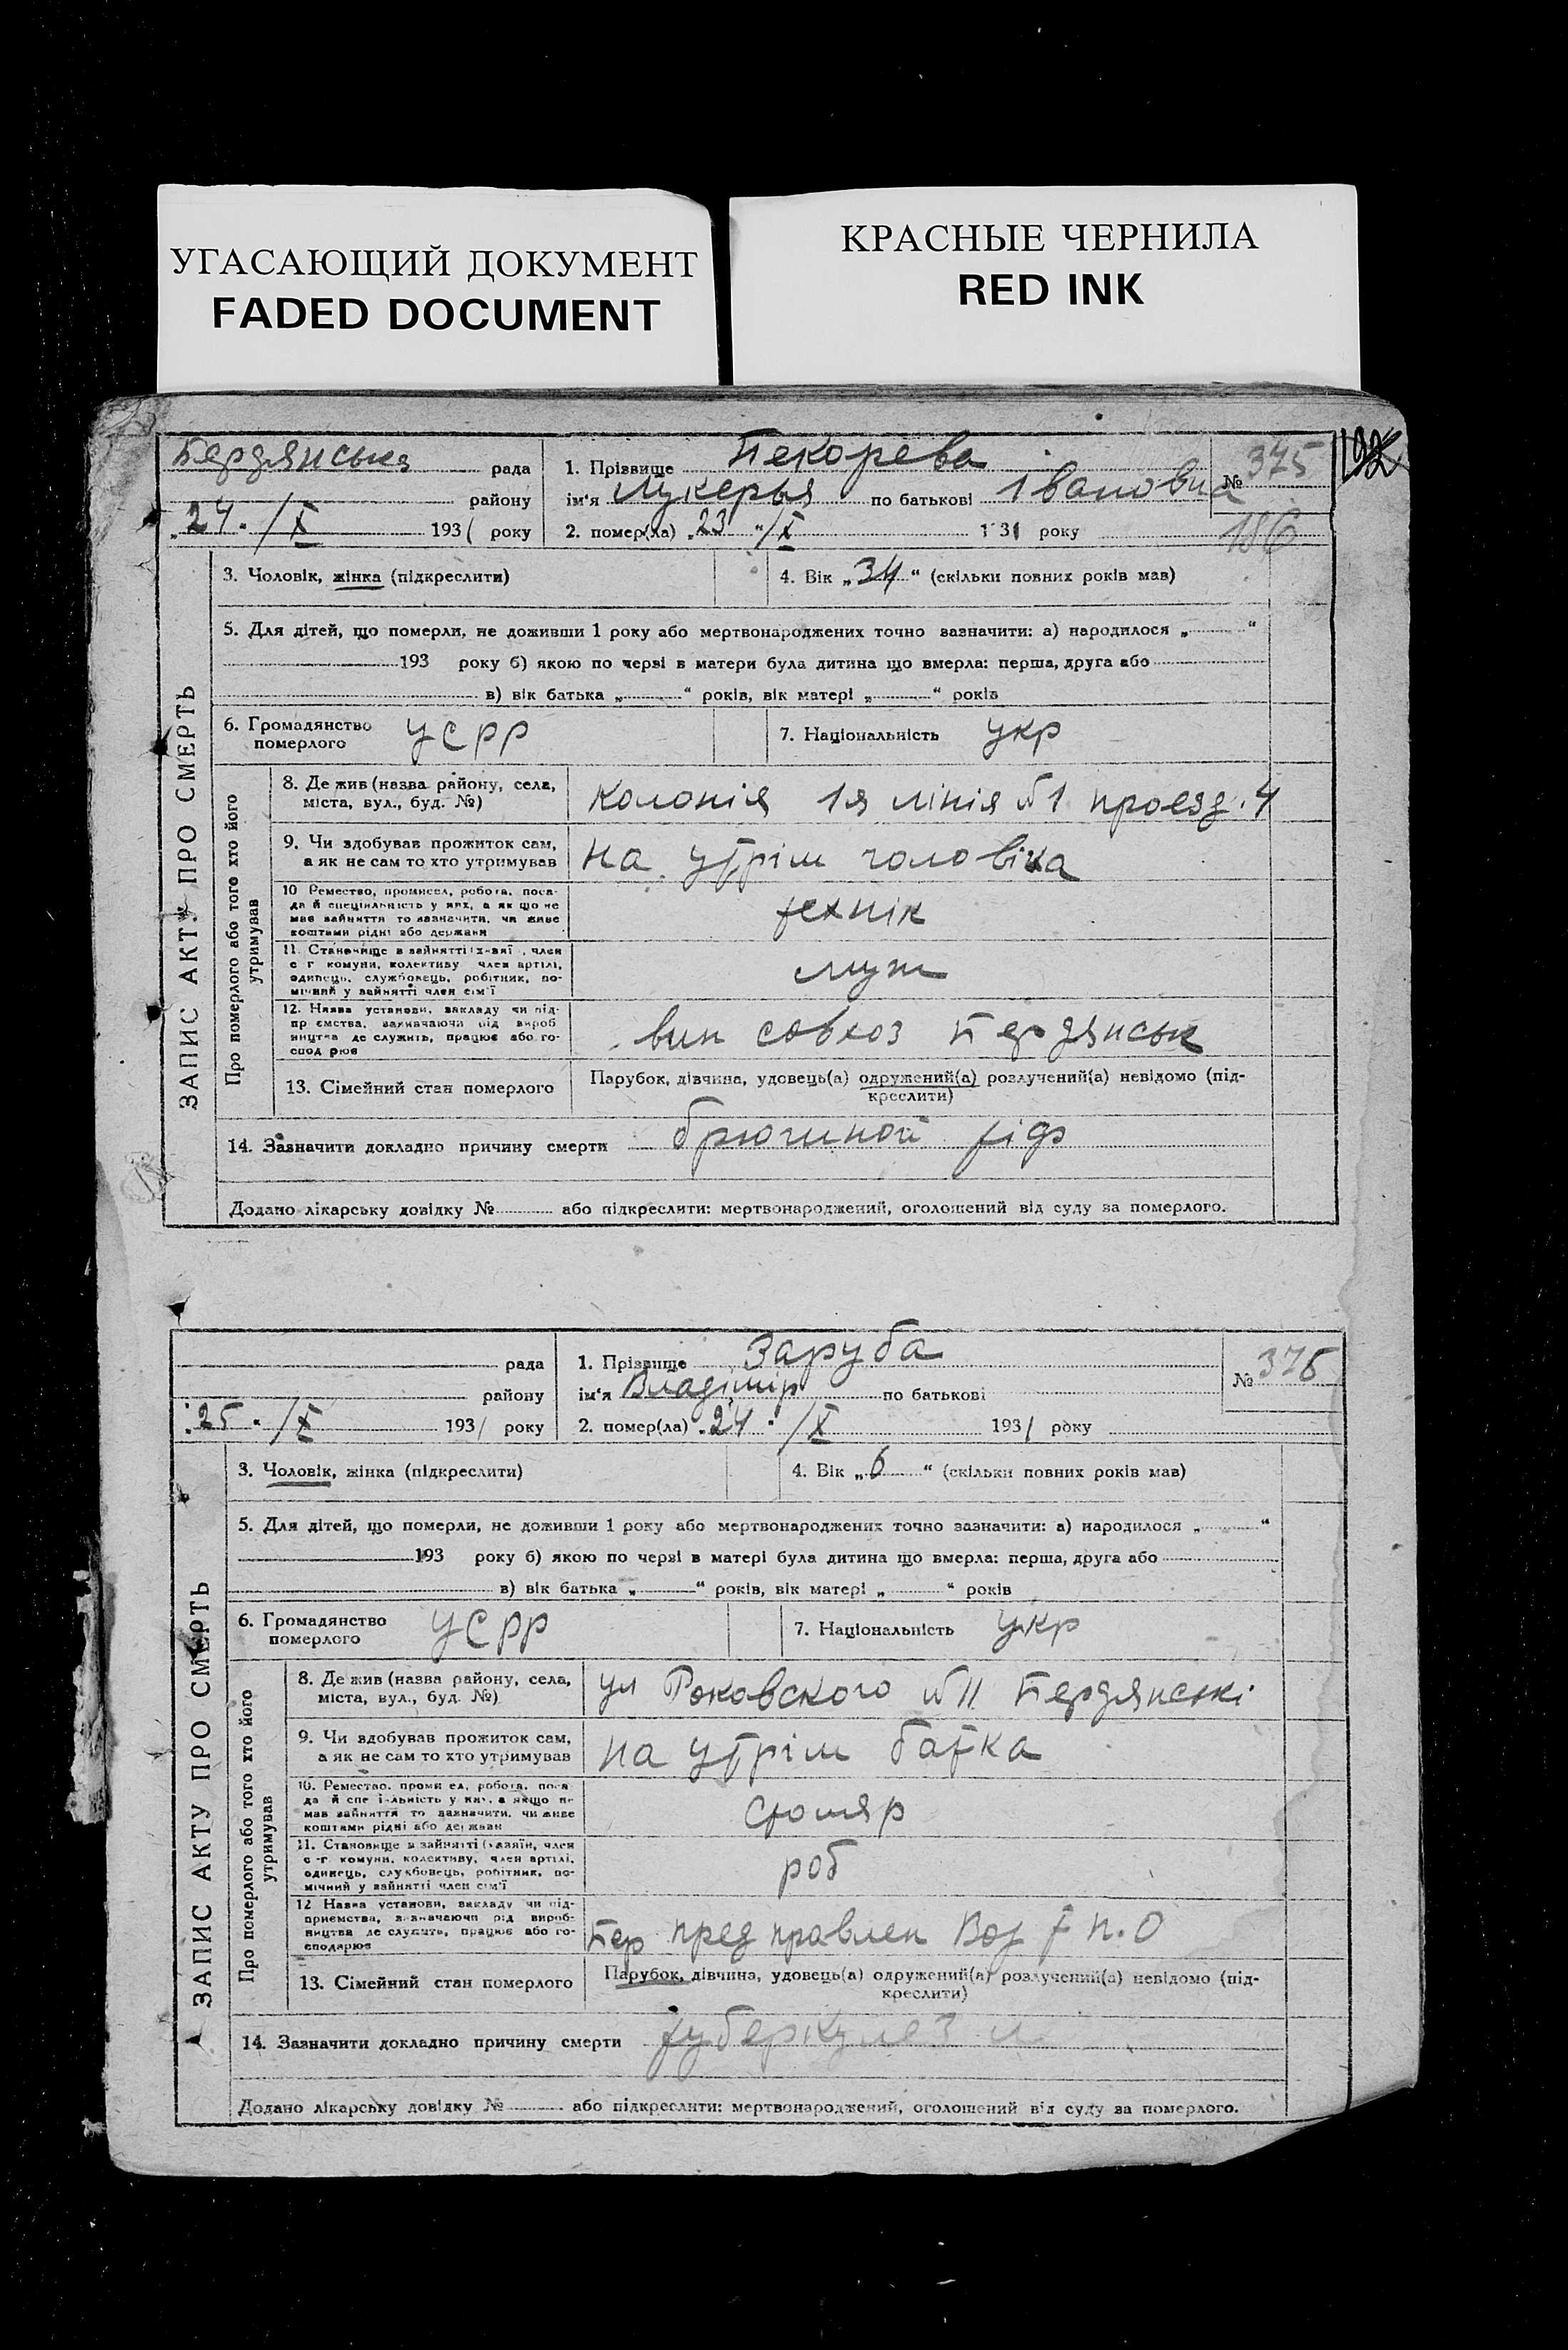 УГАСАЮЩИЙ ДОКУМЕНТ
FADED DOCUMENT
КРАСНЫЕ ЧЕРНИЛА
RED INK
Бердянська рада
району
„24“ /X 1931 року
1. Прізвище Пекорева
ім‘я Лукерья по батькові Івановна
2. помер(ла) „23“ /X 1931 року
№ 375
186
ЗАПИС АКТУ ПРО СМЕРТЬ
3. Чоловік, жінка (підкреслити)
4. Вік „34“ (скільки повних років мав)
5. Для дітей, що померли, не доживши 1 року або мертвонароджених точно зазначити: а) народилося „ “
193 року б) якою по черзі в матери була дитина що вмерла: перша, друга або
в) вік батька „ “ років, вік матері „ “ років
6. Громадянство померлого УСРР
7. Національність укр
Про померлого або того хто його утримував
8. Де жив (назва району, села,
міста, вул., буд. №)
Колонія 1я лінія №1 проезд. 4
9. Чи здобував прожиток сам,
а як не сам то хто утримував
на утрім чоловіка
10 Ремество, промисел, робота, поса-
да й спеціяльність у них, а як що не
має зайняття то зазначити, чи живе
коштами рідні або держави
технік
11. Становище в зайнятті
с г комуни, колективу член артілі,
одинець, службовець, робітник, по-
мічний у зайнятті член сім‘ї
муж
12. Назва установи, закладу чи під-
пр ємства, зазначаючи рід вироб
ництва де служить, працює або го-
спод рює
вин совхоз Бердянськ
13. Сімейний стан померлого
Парубок, дівчина, удовець(а) одружений(а) розлучений(а) невідомо (під-
креслити)
14. Зазначити докладно причину смерти брюшной тіф
Додано лікарську довідку № або підкреслити: мертвонароджений, оголошений від суду за померлого.
рада
району
„25“ /X 1931 року
1. Прізвище Заруба
ім‘я Владімір по батькові
2. помер(ла) „24“ /X 1931 року
№ 376
ЗАПИС АКТУ ПРО СМЕРТЬ
3. Чоловік, жінка (підкреслити)
4. Вік „6“ (скільки повних років мав)
5. Для дітей, що померли, не доживши 1 року або мертвонароджених точно зазначити: а) народилося „ “
193 року б) якою по черзі в матері була дитина що вмерла: перша, друга або
в) вік батька „ “ років, вік матері „ “ років
6. Громадянство померлого УСРР
7. Національність укр
Про померлого або того хто його утримував
8. Де жив (назва району, села,
міста, вул., буд. №)
ул Роковского №11 Бердянські
9. Чи здобував прожиток сам,
а як не сам то хто утримував
на утрім батка
10. Ремество, робота, поса
да й спе і-льність у них, а якщо не
мав зайняття то зазначити, чи живе
коштами рідні або держави
столяр
11. Становище в зайнятті (хазяїн, член
с-г. комуни, колективу, член артілі,
одинець, службовець, робітник, по-
мічний у зайнятті член сім‘ї
роб
12 Назва установи, закладу чи під-
приємства, зазначаючи рід вироб-
ництва де служить, працює або го-
сподарює
Бер пред правлен
13. Сімейний стан померлого
Парубок, дівчина, удовець(а) одружений(а) розлучений(а) невідомо (під-
креслити)
14. Зазначити докладно причину смерти туберкулез
Додано лікарську довідку № або підкреслити: мертвонароджений, оголошений від суду за померлого.